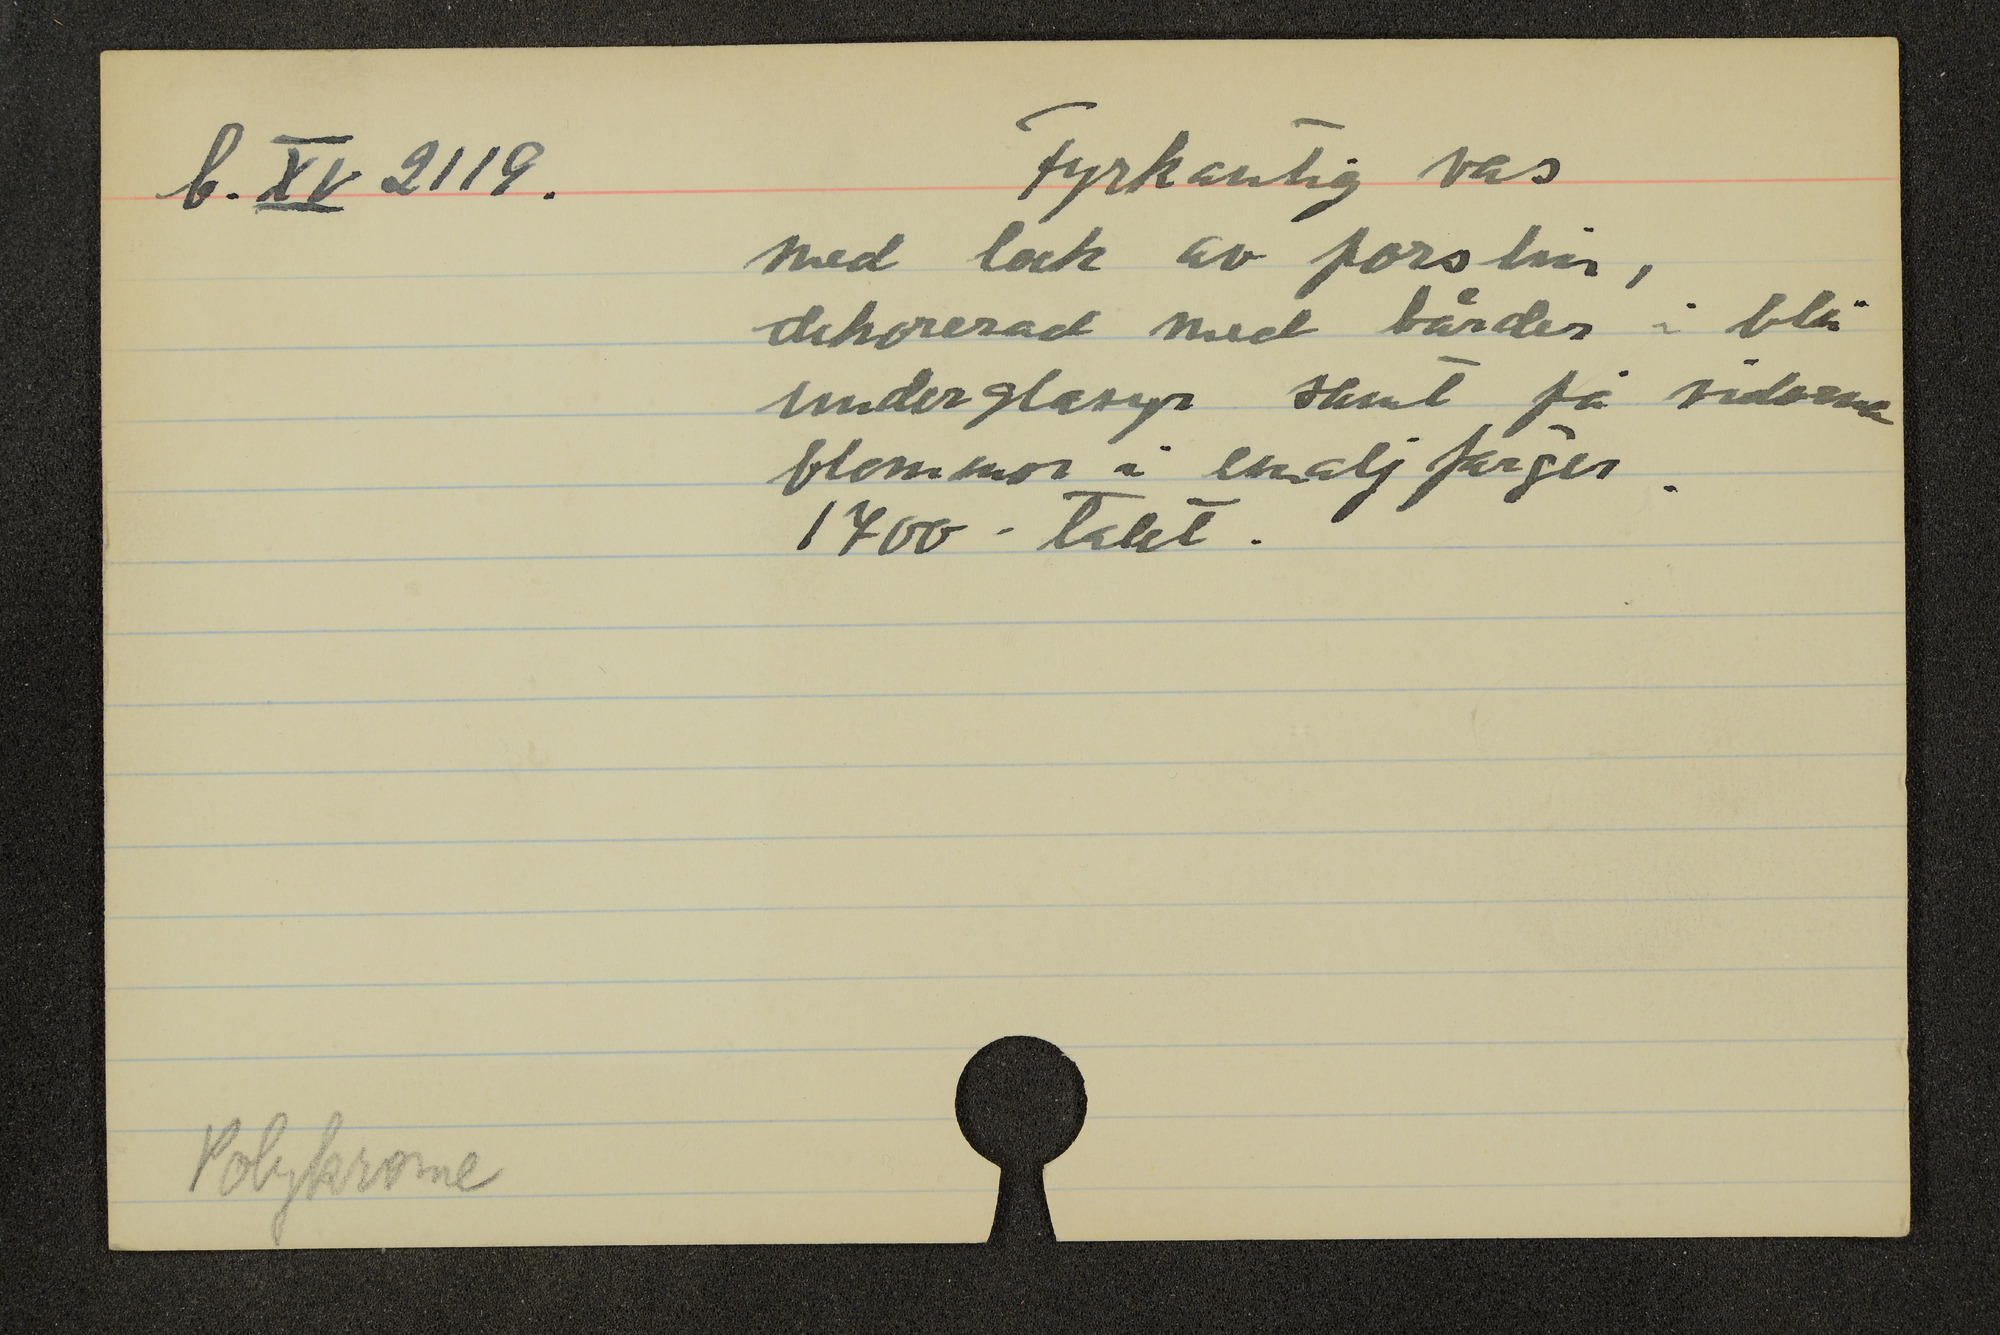 b. XV 2119.
Fyrkantig vas
med lock av porslin,
dekorerad med bårder i blå
underglasyr samt på sidorna
blommor i emaljfärger.
1700-talet.
Polykrome